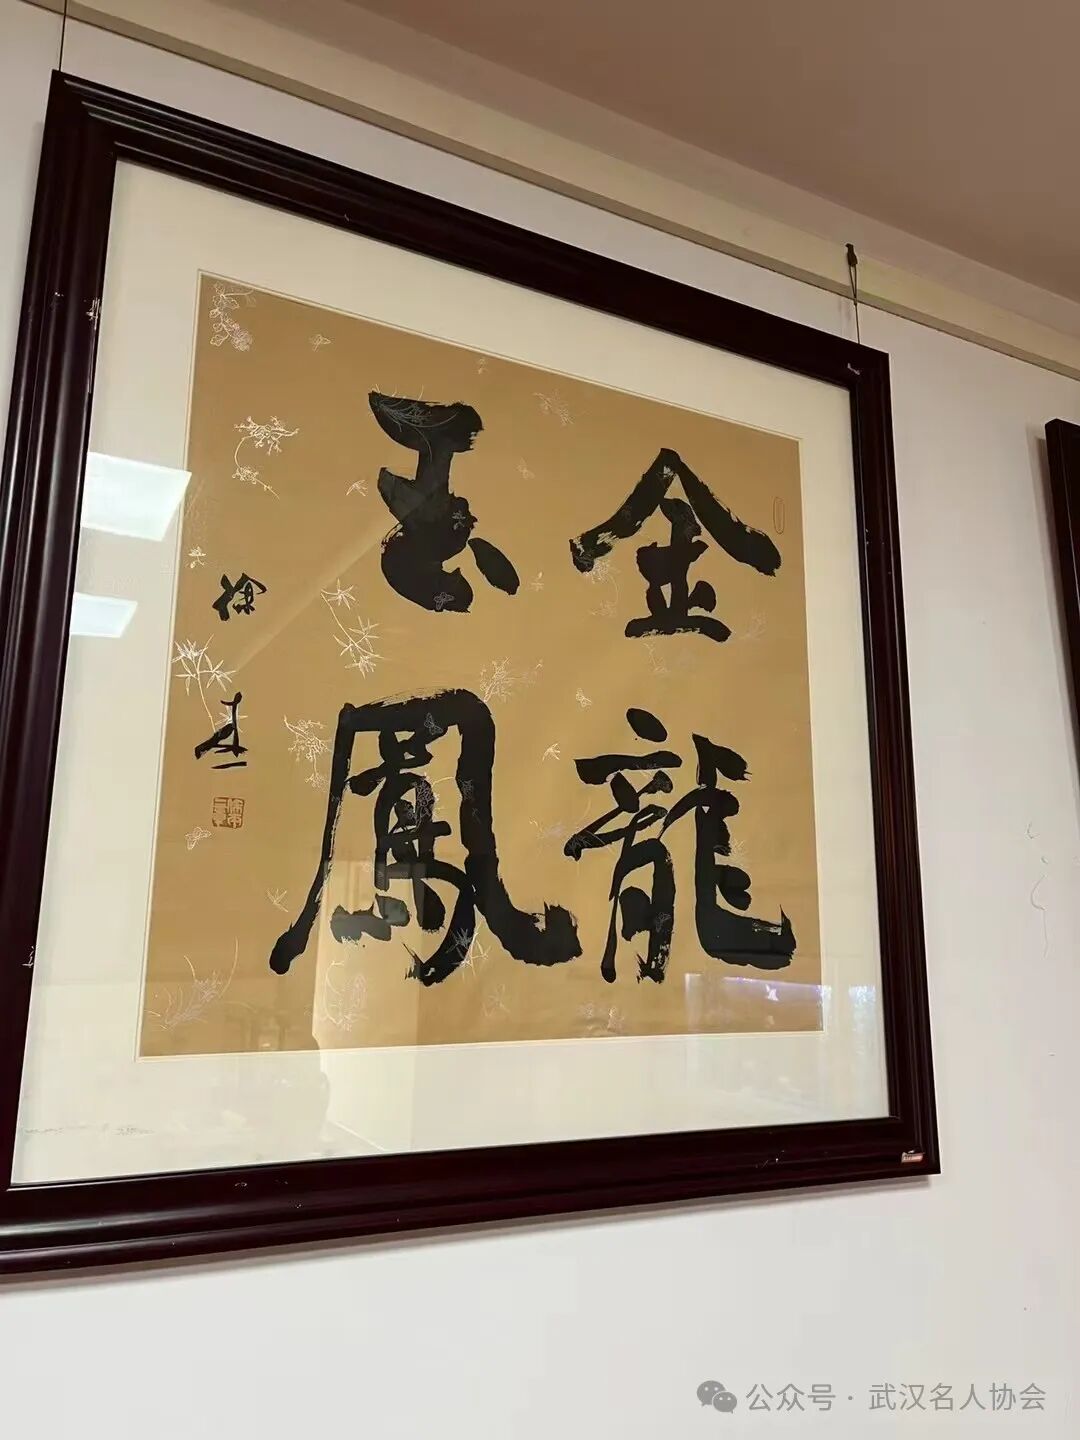 金龍
玉鳳
徐本一
公众号 · 武汉名人协会